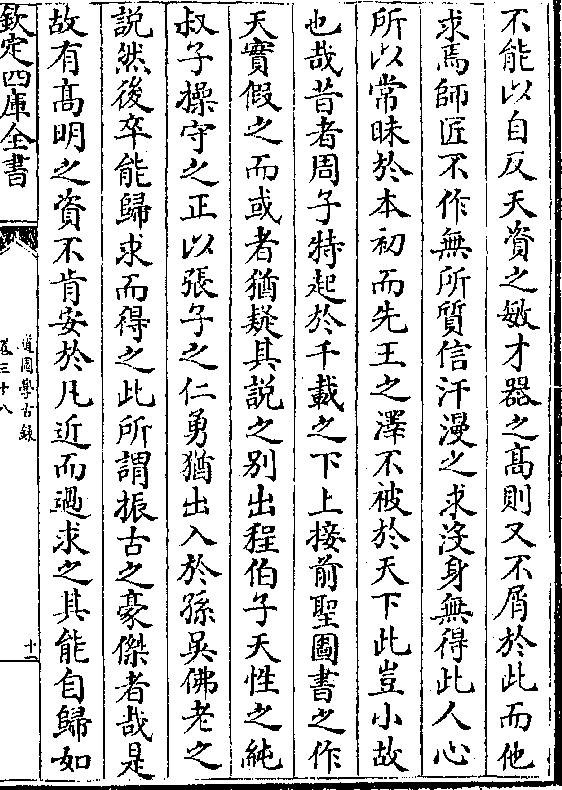 不能以自反天資之敏才器之髙則又不屑於此而他
求焉師匠不作無所質信汗漫之求沒身無得此人心
所以常昧於本初而先王之澤不被於天下此豈小故
也哉昔者周子特起於千載之下上接前聖圖書之作
天實假之而或者猶疑其說之别出程伯子天性之純
叔子操守之正以張子之仁勇猶出入於孫吳佛老之
說然後卒能歸求而得之此所謂振古之豪傑者哉是
故有髙明之資不肯安於凡近而過求之其能自歸如
欽定四庫全書
道園學古録
卷三十八
十一